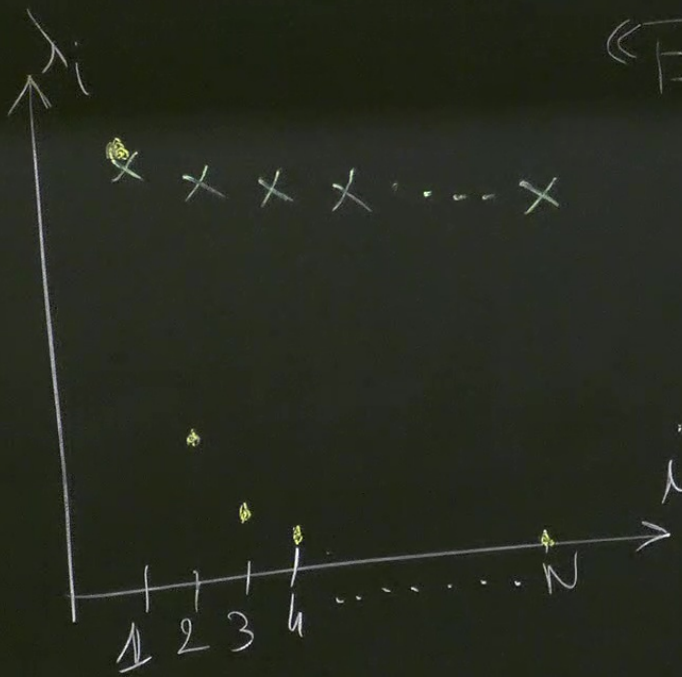 λi
1 2 3 4 ........ N